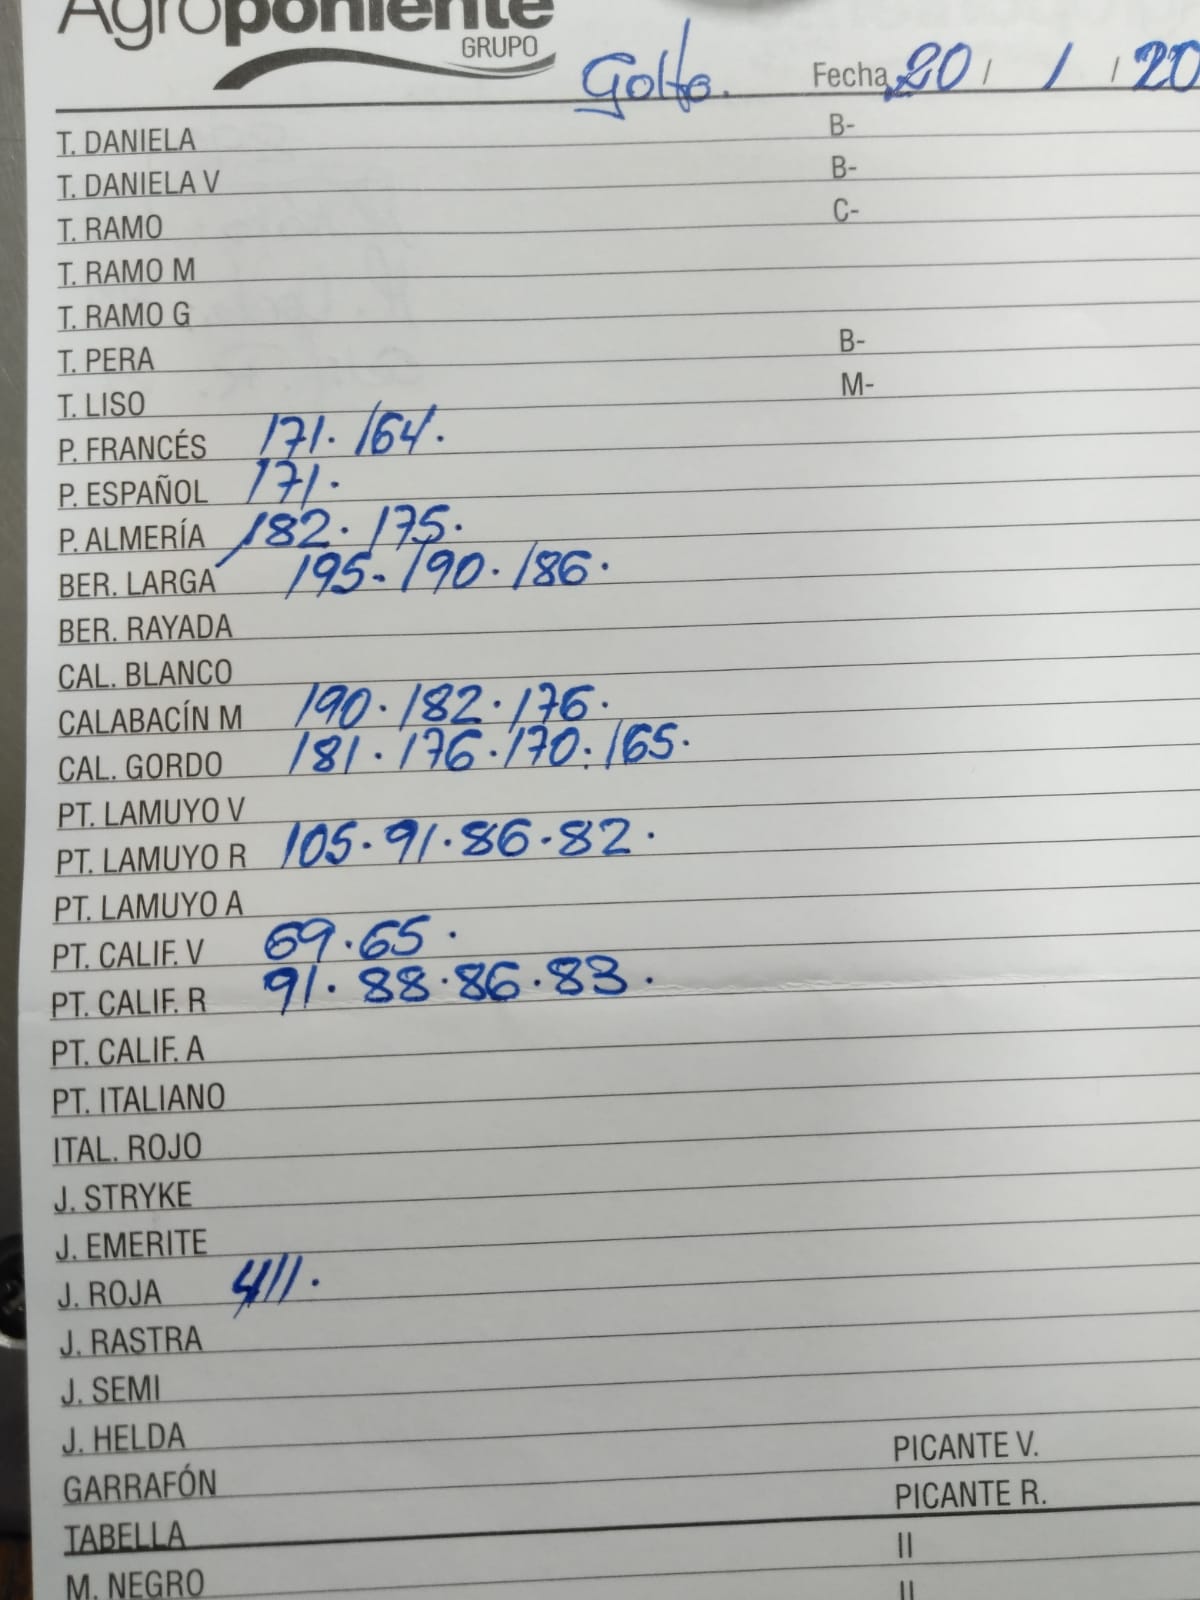 Agroponiente
GRUPO
Golfo. Fecha 20 / 1 / 20
T. DANIELA B-
T. DANIELA V B-
T. RAMO C-
T. RAMO M
T. RAMO G
T. PERA B-
T. LISO M-
P. FRANCÉS 171. 164.
P. ESPAÑOL 171.
P. ALMERÍA 182. 175.
BER. LARGA 195. 190. 186.
BER. RAYADA
CAL. BLANCO
CALABACÍN M 190. 182. 176.
CAL. GORDO 181. 176. 170. 165.
PT. LAMUYO V
PT. LAMUYO R 105. 91. 86. 82.
PT. LAMUYO A
PT. CALIF. V 69. 65.
PT. CALIF. R 91. 88. 86. 83.
PT. CALIF. A
PT. ITALIANO
ITAL. ROJO
J. STRYKE
J. EMERITE
J. ROJA 411.
J. RASTRA
J. SEMI
J. HELDA
GARRAFÓN PICANTE V.
TABELLA PICANTE R.
M. NEGRO II
II